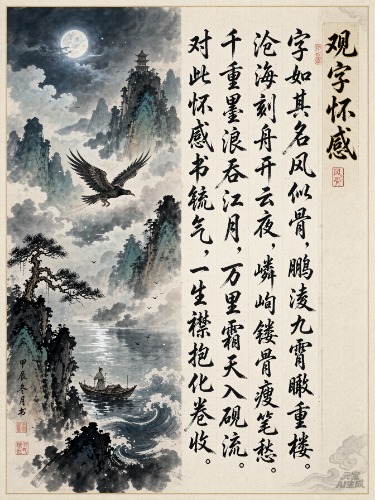 观字怀感
风骨
字如其名风似骨，鹏凌九霄瞰重楼。
沧海刻舟开云夜，嶙峋镂骨瘦笔愁。
千重墨浪吞江月，万里霜天入砚流。
对此怀感书毓气，一生襟抱化卷收。
甲辰冬月书
元宝
AI生成